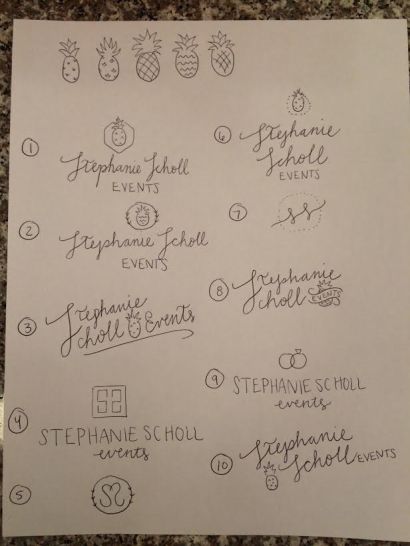 1
Stephanie Scholl
EVENTS
2
Stephanie Scholl
EVENTS
3
Stephanie
Scholl Events
4
SS
STEPHANIE SCHOLL
events
5
SS
6
Stephanie
Scholl
EVENTS
7
SS
8
Stephanie
Scholl EVENTS
9
STEPHANIE SCHOLL
events
10
Stephanie
Scholl EVENTS